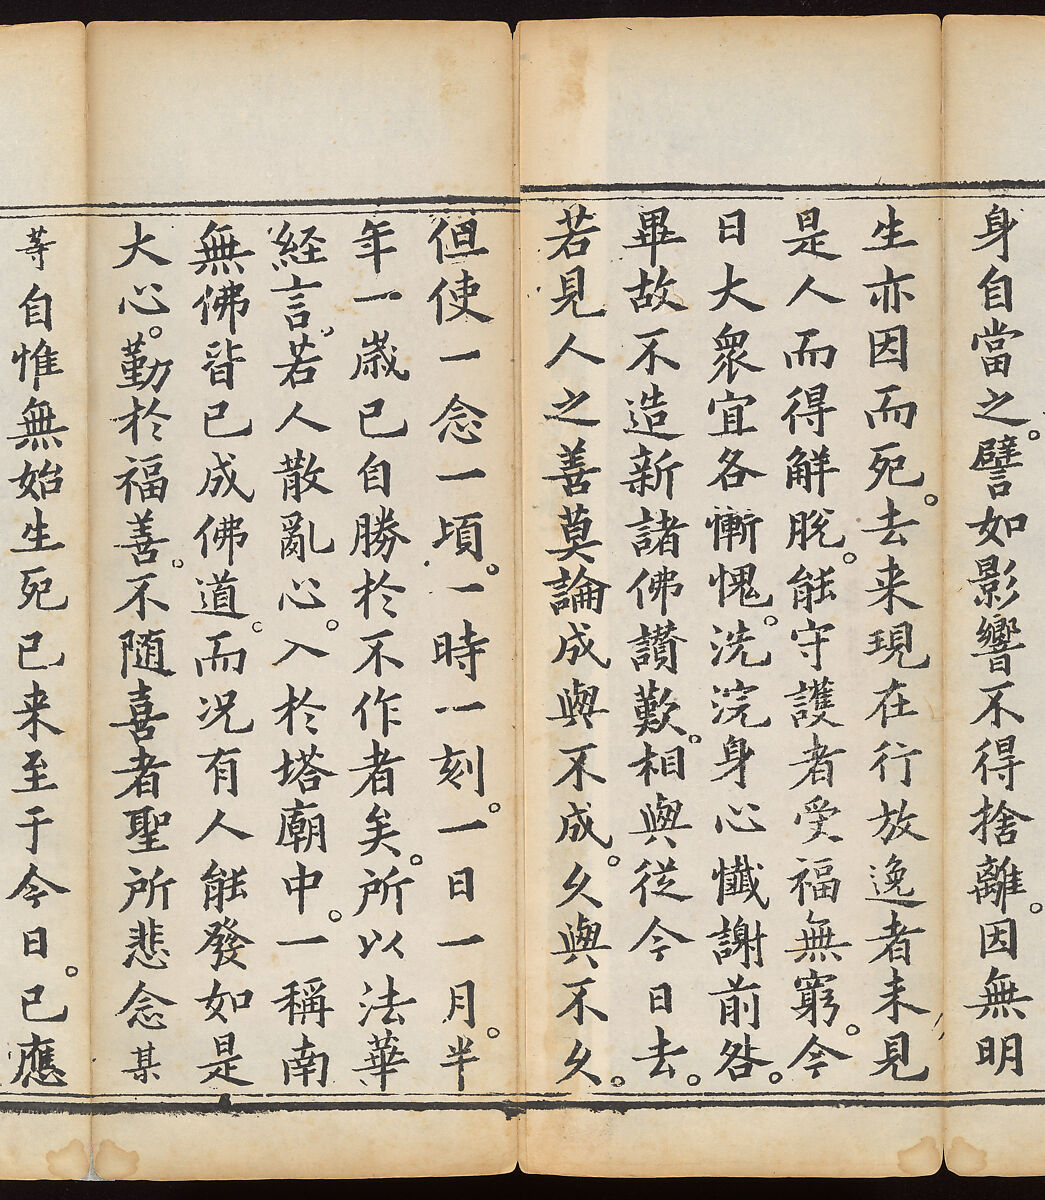 身自當之。譬如影響不得捨離。因無明
生亦因而死。去来現在行放逸者未見
是人而得解脫。能守護者受福無窮。今
日大衆宜各慚愧。洗浣身心懺謝前咎。
畢故不造新諸佛讃歎。相與從今日去。
若見人之善莫論成與不成。久與不久。
但使一念一頃。一時一刻。一日一月。半
年一歲已自勝於不作者矣。所以法華
経言。若人散亂心。入於塔廟中。一稱南
無佛皆已成佛道。而况有人能發如是
大心。勤於福善。不随喜者聖所悲念某
等自惟無始生死已来至于今日。已應